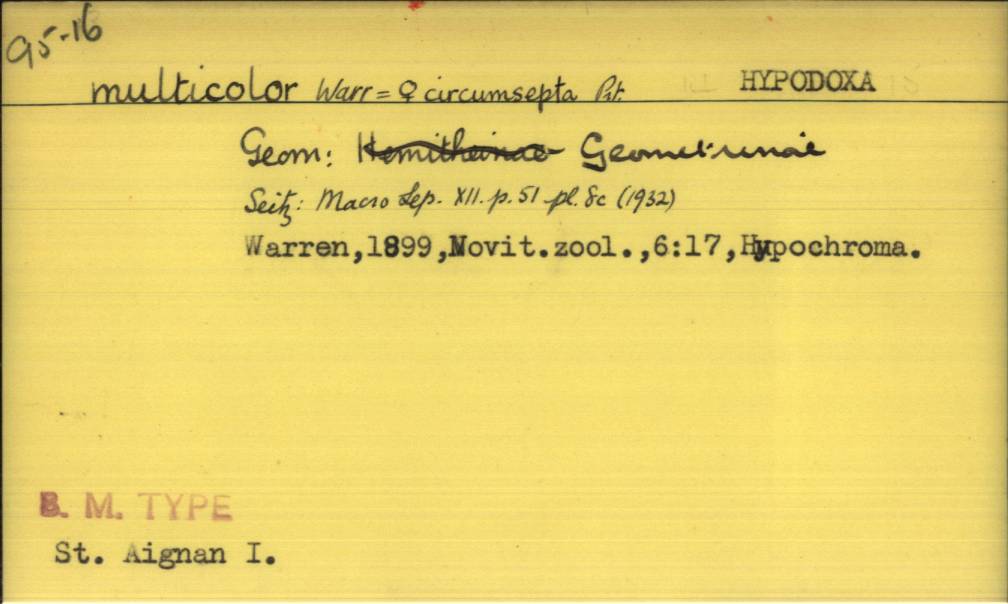 95-16
multicolor Warr = ♀ circumsepta Prt. HYPODOXA
Geom: Hemitheinae Geometrinae
Seitz: Macro Lep. XII. p. 51 pl. 8c (1932)
Warren,1899,Novit.zool.,6:17,Hypochroma.
B. M. TYPE
St. Aignan I.